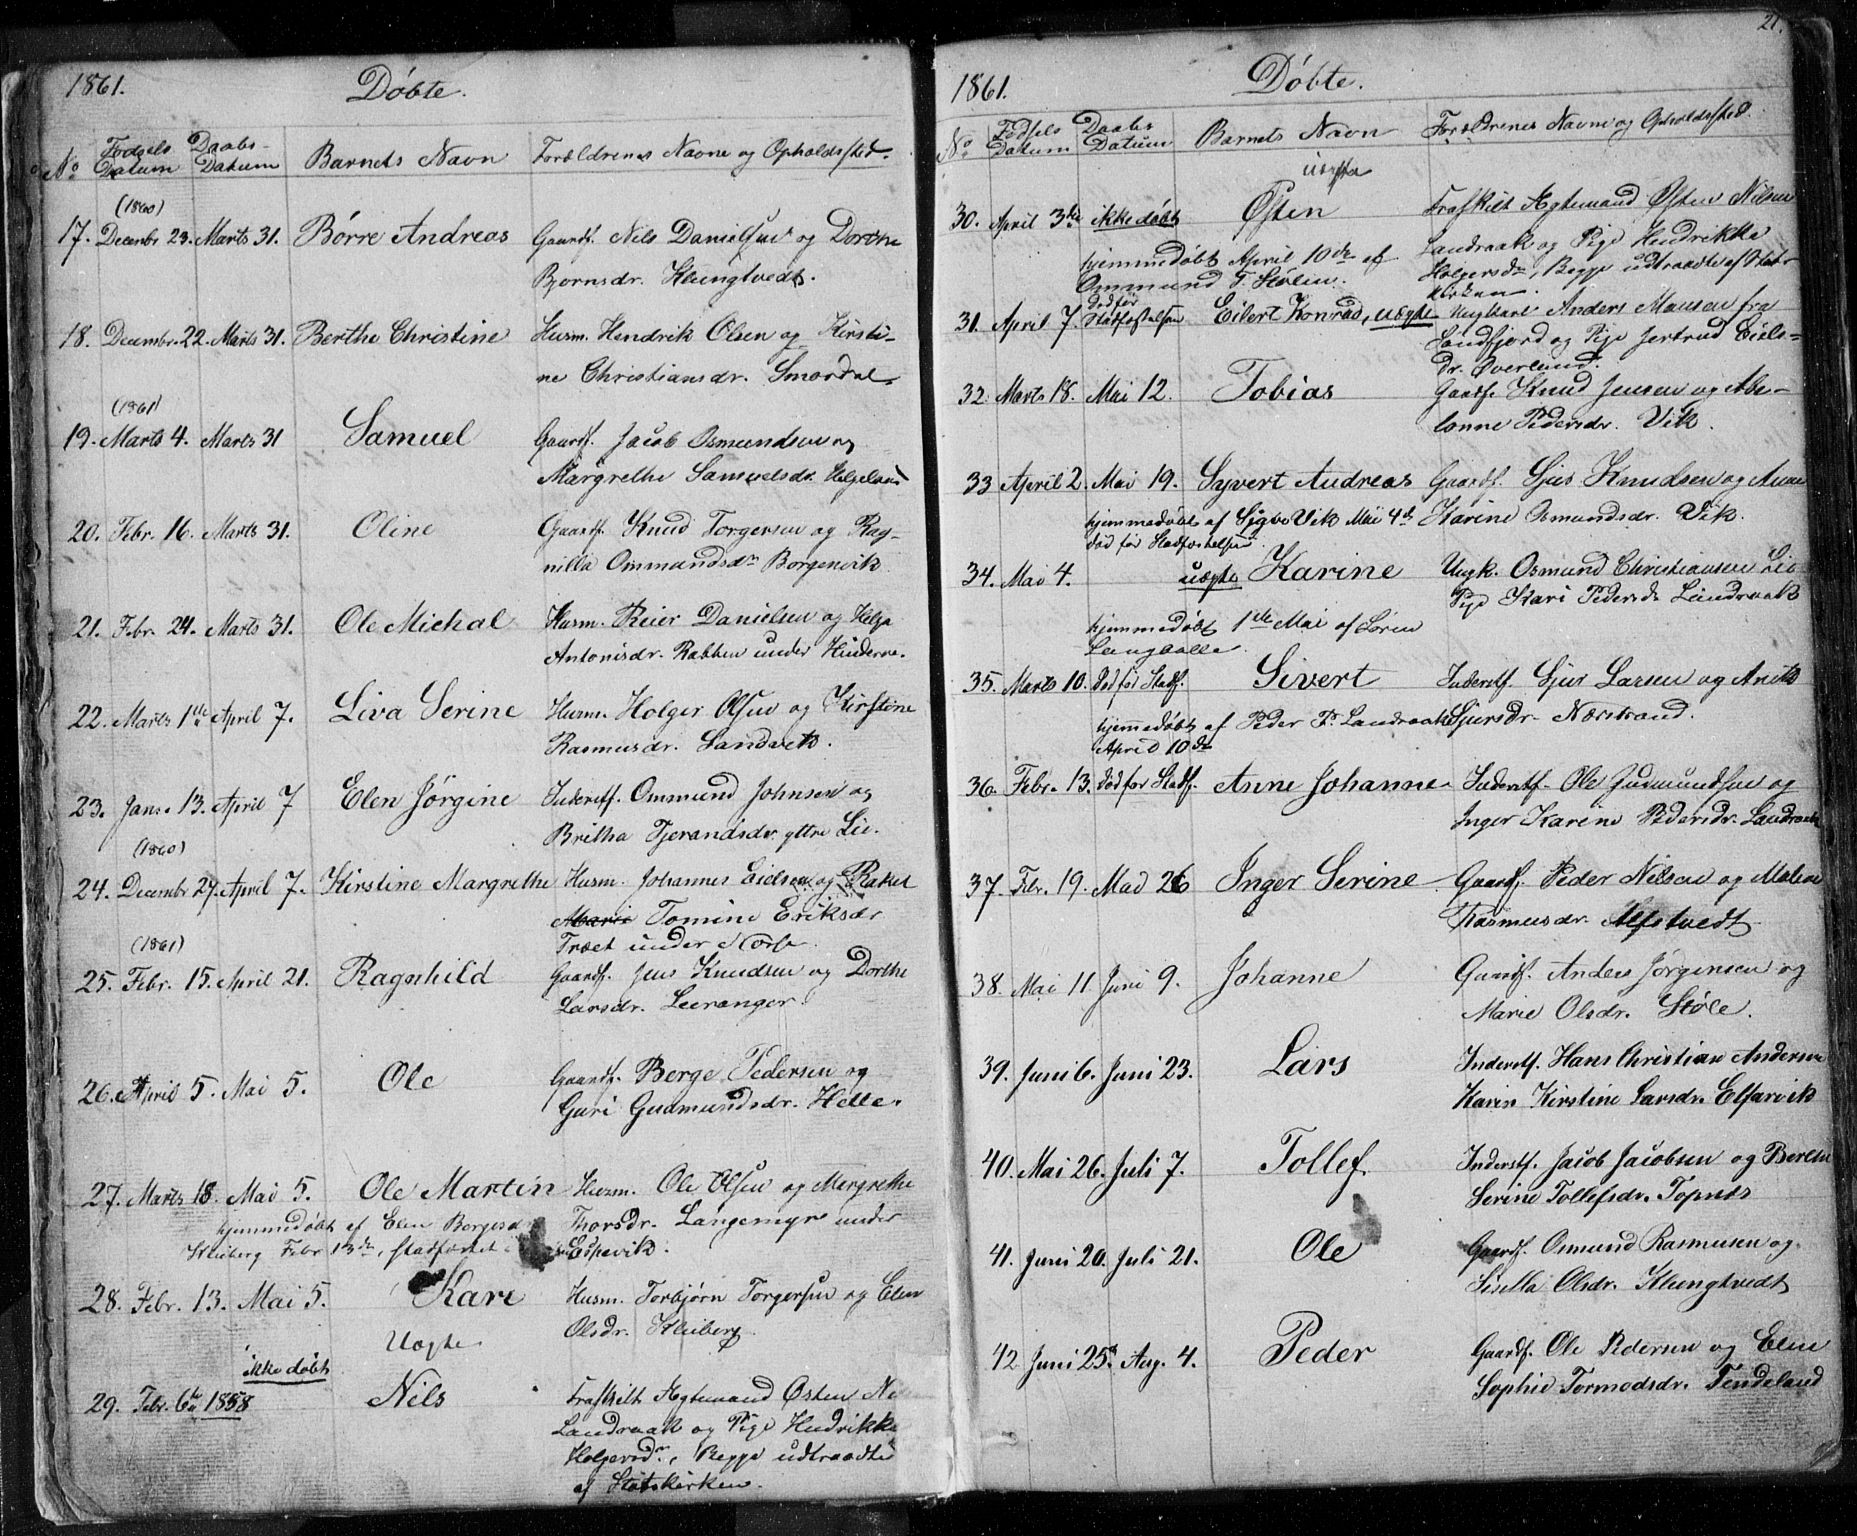 1861.
Døbte.
No Fødsels Datum Daabs-Datum Barnets Navn Forældrenes Navne og Opholdssted.
(1860)
17. Decembr 23. Marts 31. Børre Andreas Gaardf. Nils Danielsen og Dorthe
Bjørnsdr. Klungtvedt.
18. Decembr. 22. Marts 31. Berthe Christine Husm. Hendrik Olsen og Kirsti-
ne Christiansdr. Smørdal
(1861)
19. Marts 4. Marts 31 Samuel Gaardf. Jacob Osmundsen og
Margrethe Samuelsdr. Helgeland
20. Febr. 16. Marts 31. Oline Gaardf. Knud Torgersen og Rag-
nilla Ommundsdr Borgenvik
21. Febr. 24. Marts 31. Ole Michal Husm. Reier Danielsen og Helga
Antonisdr. Rabben under Hinderne.
22. Marts 1ste April 7. Liva Serine Husm. Holger Olsen og Kirstine
Rasmusdr. Sandvik.
23. Jan. 13. April 7 Elen Jørgine Inderstf. Ommund Johnsen og
Britha Tjerandsdr. yttre Lie.
(1860)
24. Decembr 27. April 7. Kirstine Margrethe Husm. Johannes Eidsen og Rakel
Tomine Eriksdr
Træet under
(1861)
25. Febr. 15. April 21. Ragnhild Gaardf. Jens Knudsen og Dorthe
Larsdr. Leeranger
26. April 5. Mai 5. Ole Gaardf. Børge Pedersen og
Guri Gudmundsdr. Helle.
27. Marts 18 Mai 5. Ole Martin Husm. Ole Olsen og Mergrethe
hjemmedøbt af Elen Børgesd Thorsdr. Langemyr under
Kleiberg Febr 13de, stadfæstet Espevik.
28. Febr. 13. Mai 5. Kari Husm. Torbjørn Torgersen og Elen
Olsdr. Kleiberg.
Uægte
ikke døbt
29. Febr. 6te 1858 Nils Fraskilt Ægtemand Østen
Landraak og Pige Hendrikke
Holgersdr., Begge udtraadte
af Statskirken.
21.
1861.
Døbte.
No Fødsels Datum Daabs Datum Barnets Navn Forældrenes Navne og Opholdssted.
uægte
30. April 3die ikke døbt Østen Fraskilt Ægtemand Østen Nilsen
hjemmedøbt April 10de af Landraak og Pige Hendrikke
Ommund T. Stølen. Holgersdr, Begge udtraadte af Stats-
kirken.
31. April 7. død før Stadfæstelsen Eilert Konrad, uægte Ungkarl Anders Monsen fra
Søndfjord og Pige Jertrud Eiels-
dr. Øverland.
32. Marts 18. Mai 12. Tobias Gaardf. Knud Jensen og Abe-
lonne Pedersdr. Vik.
33 April 2. Mai 19. Syvert Andreas Gaardf. Sjur Knudsen og Anne
hjemmedøbt af Sigbe Vik Mai 4de Karine Osmundsdr. Vik.
død før Stadfæstelsen
34. Mai 4. uægte Karine Ungk. Osmund Christiansen Lie
Pige Kari Pedersdr Landraak
hjemmedøbt 1ste Mai af Søren
Langballe
35. Marts 10. død før Stadf. Sivert Inderstf. Sjur Larsen og Anite
hjemmedøbt af Peder P. Landraak Sjursdr. Nærstrand.
April 10de
36. Febr. 13. død før Stadf. Anne Johanne Inderstf. Ole Gudmundsen og
Inger Karine Pedersdr. Landraak
37. Febr. 19. Mad 26 Inger Serine Gaardf. Peder Nilsen og Malene
Rasmusdr. Alfstvedt
38. Mai 11. Juni 9. Johanne Gaardf. Anders Jørgensen og
Marie Olsdr. Støle.
39. Juni 6. Juni 23. Lars Inderstf. Hans Christian Andersen
Karin Kirstine Larsdr. Elfarvik
40. Mai 26. Juli 7. Tollef. Inderstf. Jacob Jacobsen og Berthe
Serine Tollefsdr. Topnæs
41. Juni 20. Juli 21. Ole Gaardf. Osmund Rasmusen og
Sisella Olsdr. Klungtvedt
42 Juni 25. Aug. 4. Peder Gaardf. Ole Pedersen og Elen
Sophie Tormodsdr. Tendeland